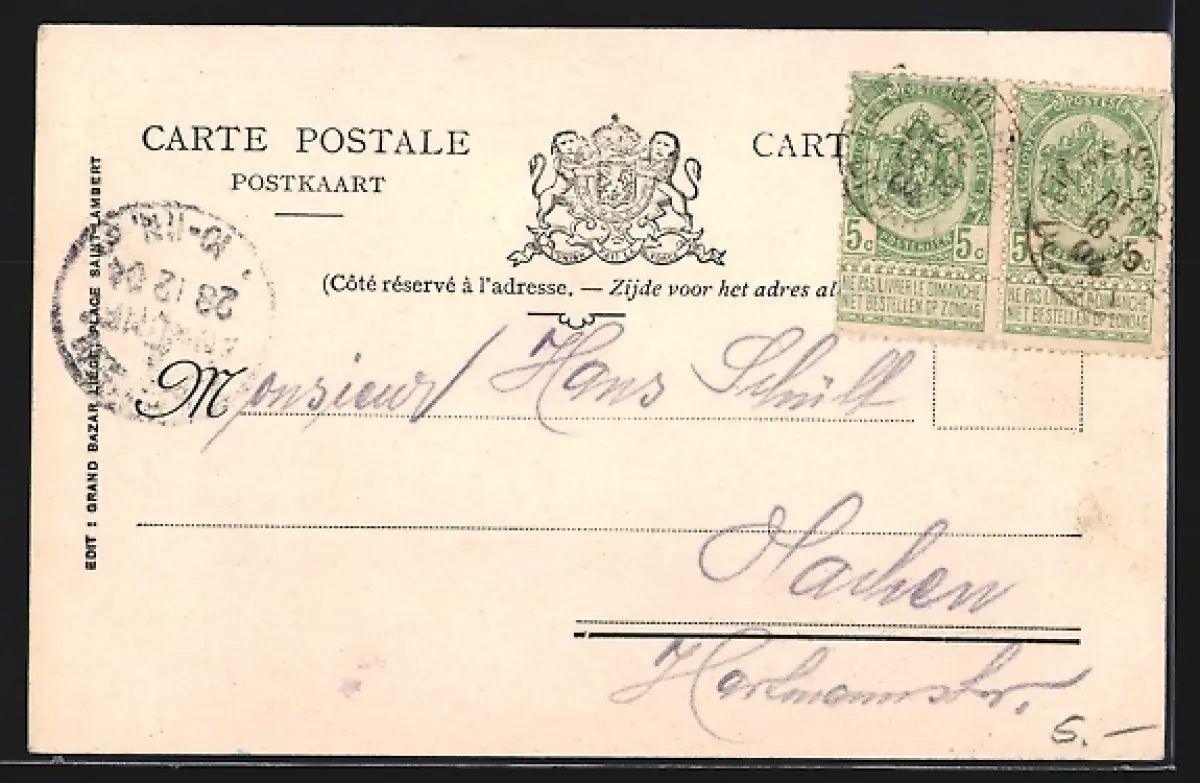 CARTE POSTALE
POSTKAART
CART
(Côté réservé à l'adresse. — Zijde voor het adres al
Monsieur Hans Schült
Aachen
Hartmannstr.
6.—
EDIT : GRAND BAZAR LIÉGE, PLACE SAINT-LAMBERT
28 12 04
POSTES
5c 5c
NE PAS LIVRER LE DIMANCHE
NIET BESTELLEN OP ZONDAG
POSTES
5 5c
NE PAS LIVRER LE DIMANCHE
NIET BESTELLEN OP ZONDAG